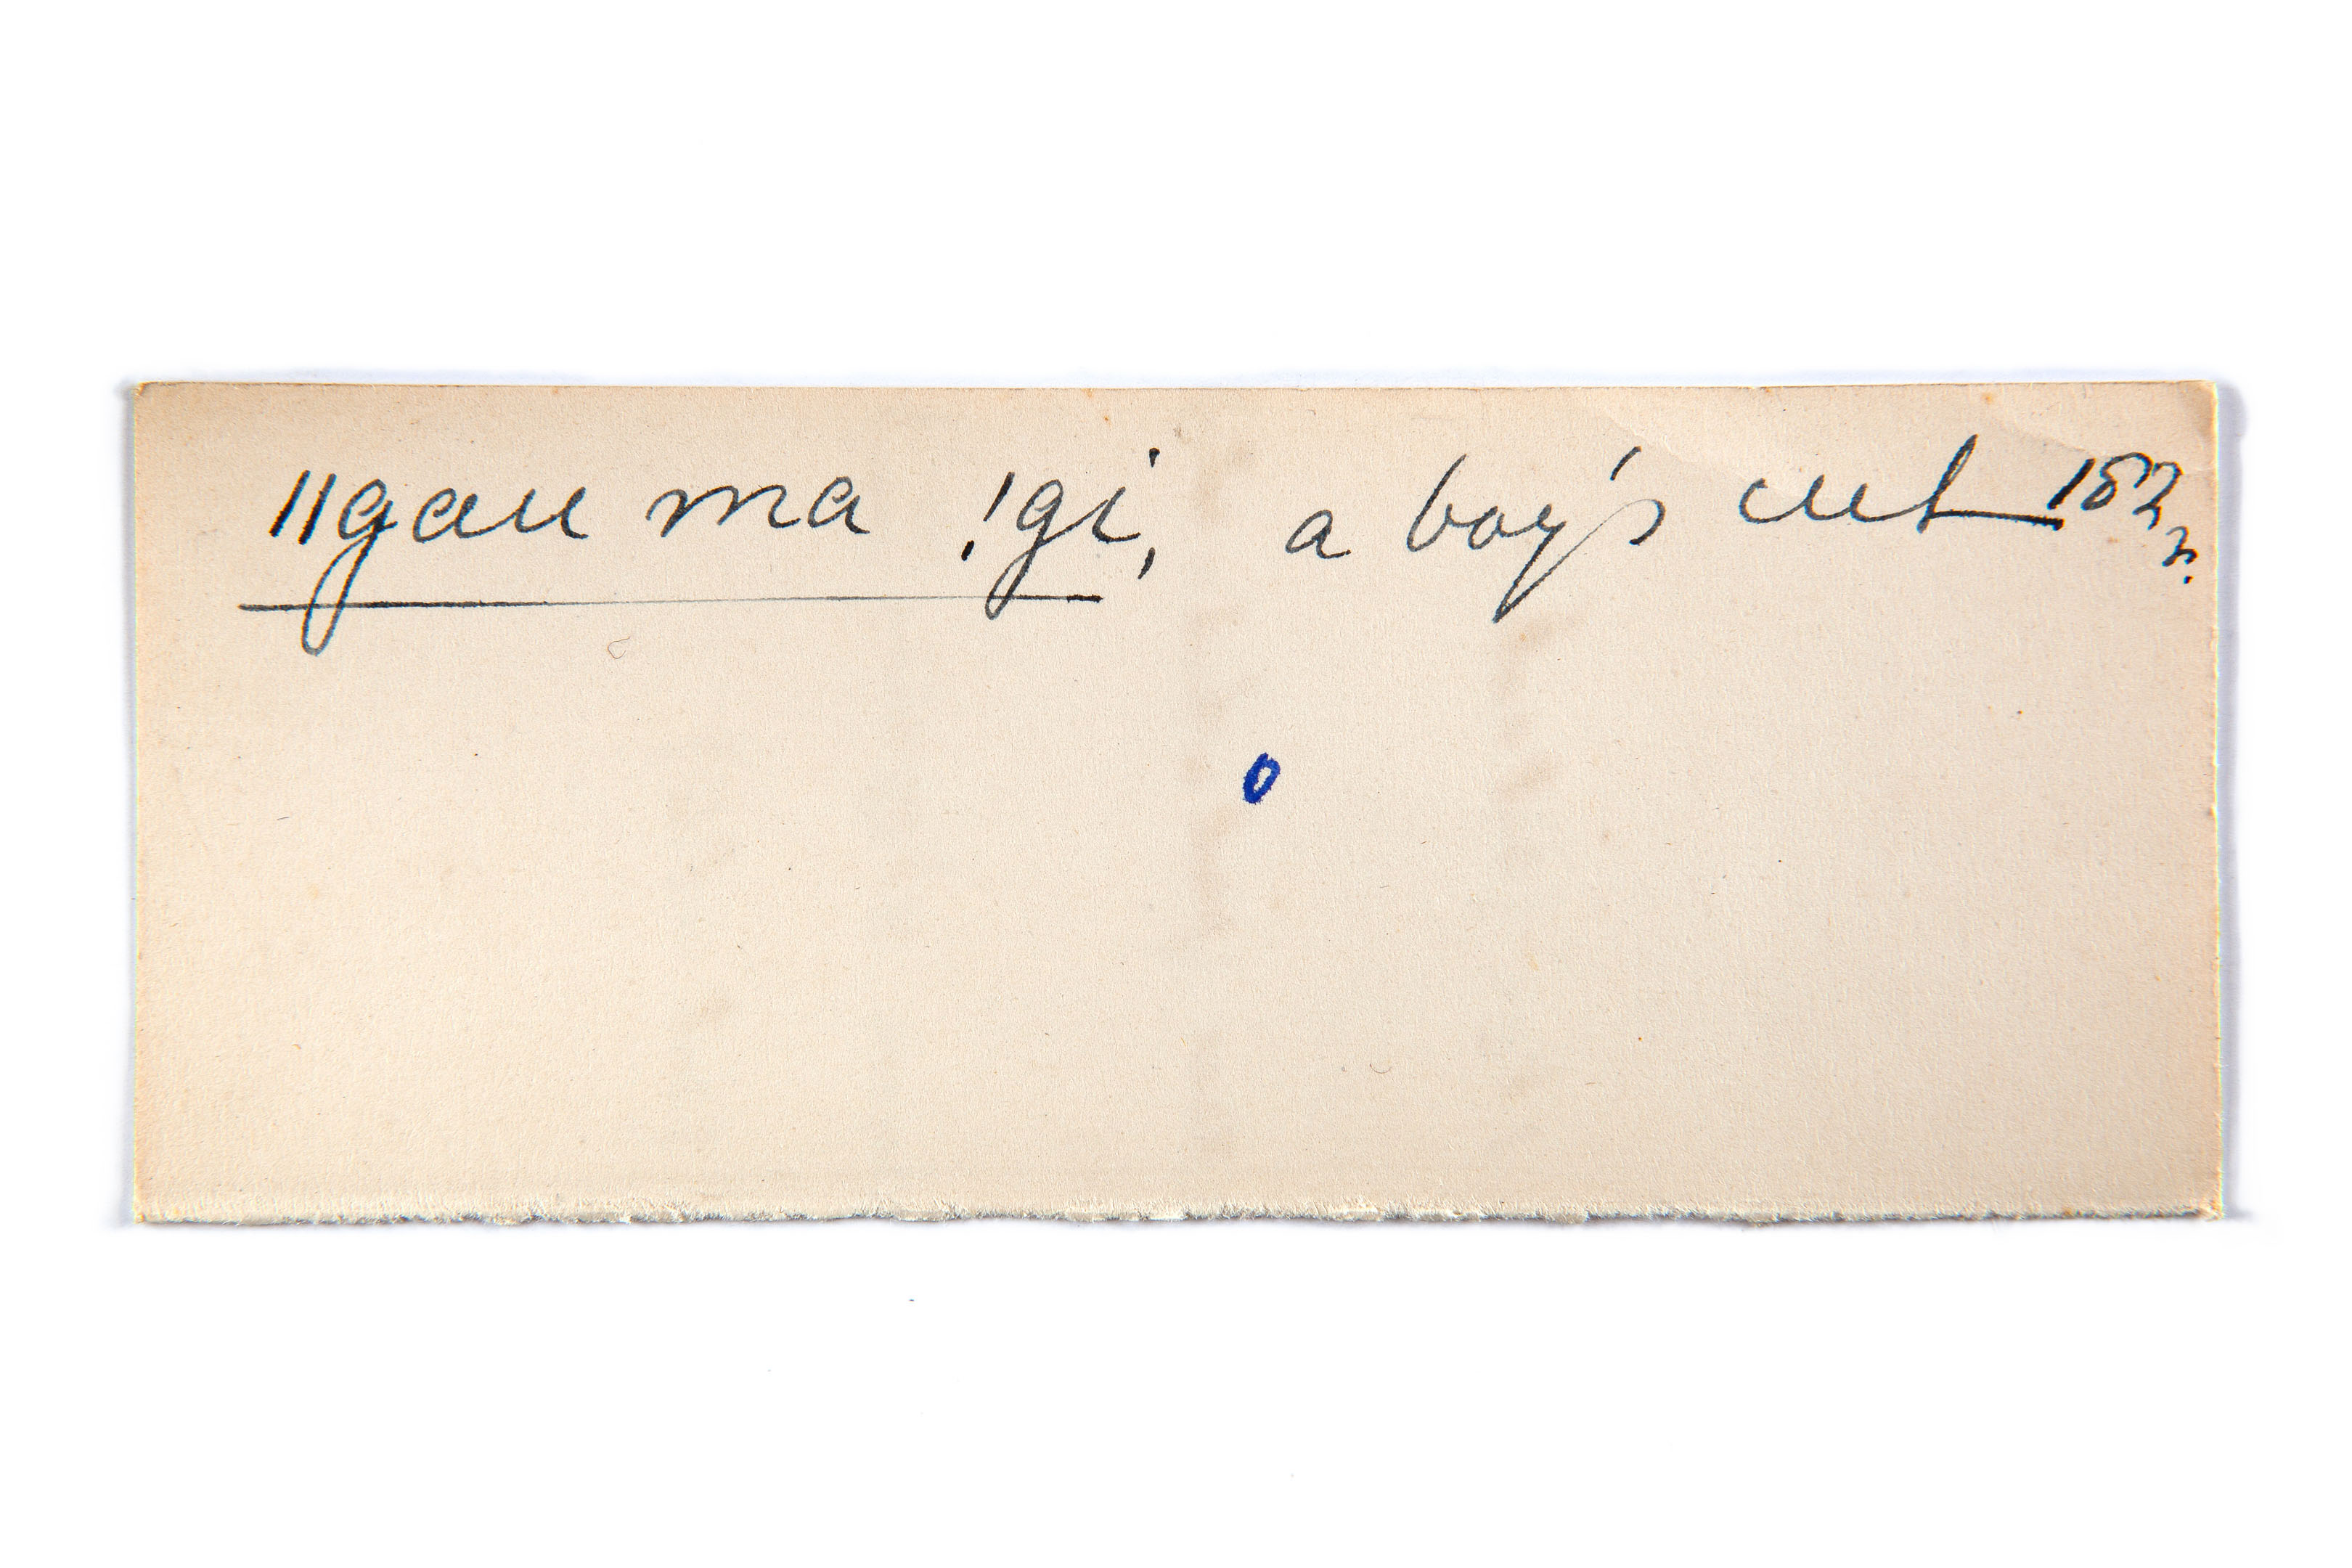 ǁgau ma !gi, a boy's cut 182
r.
o